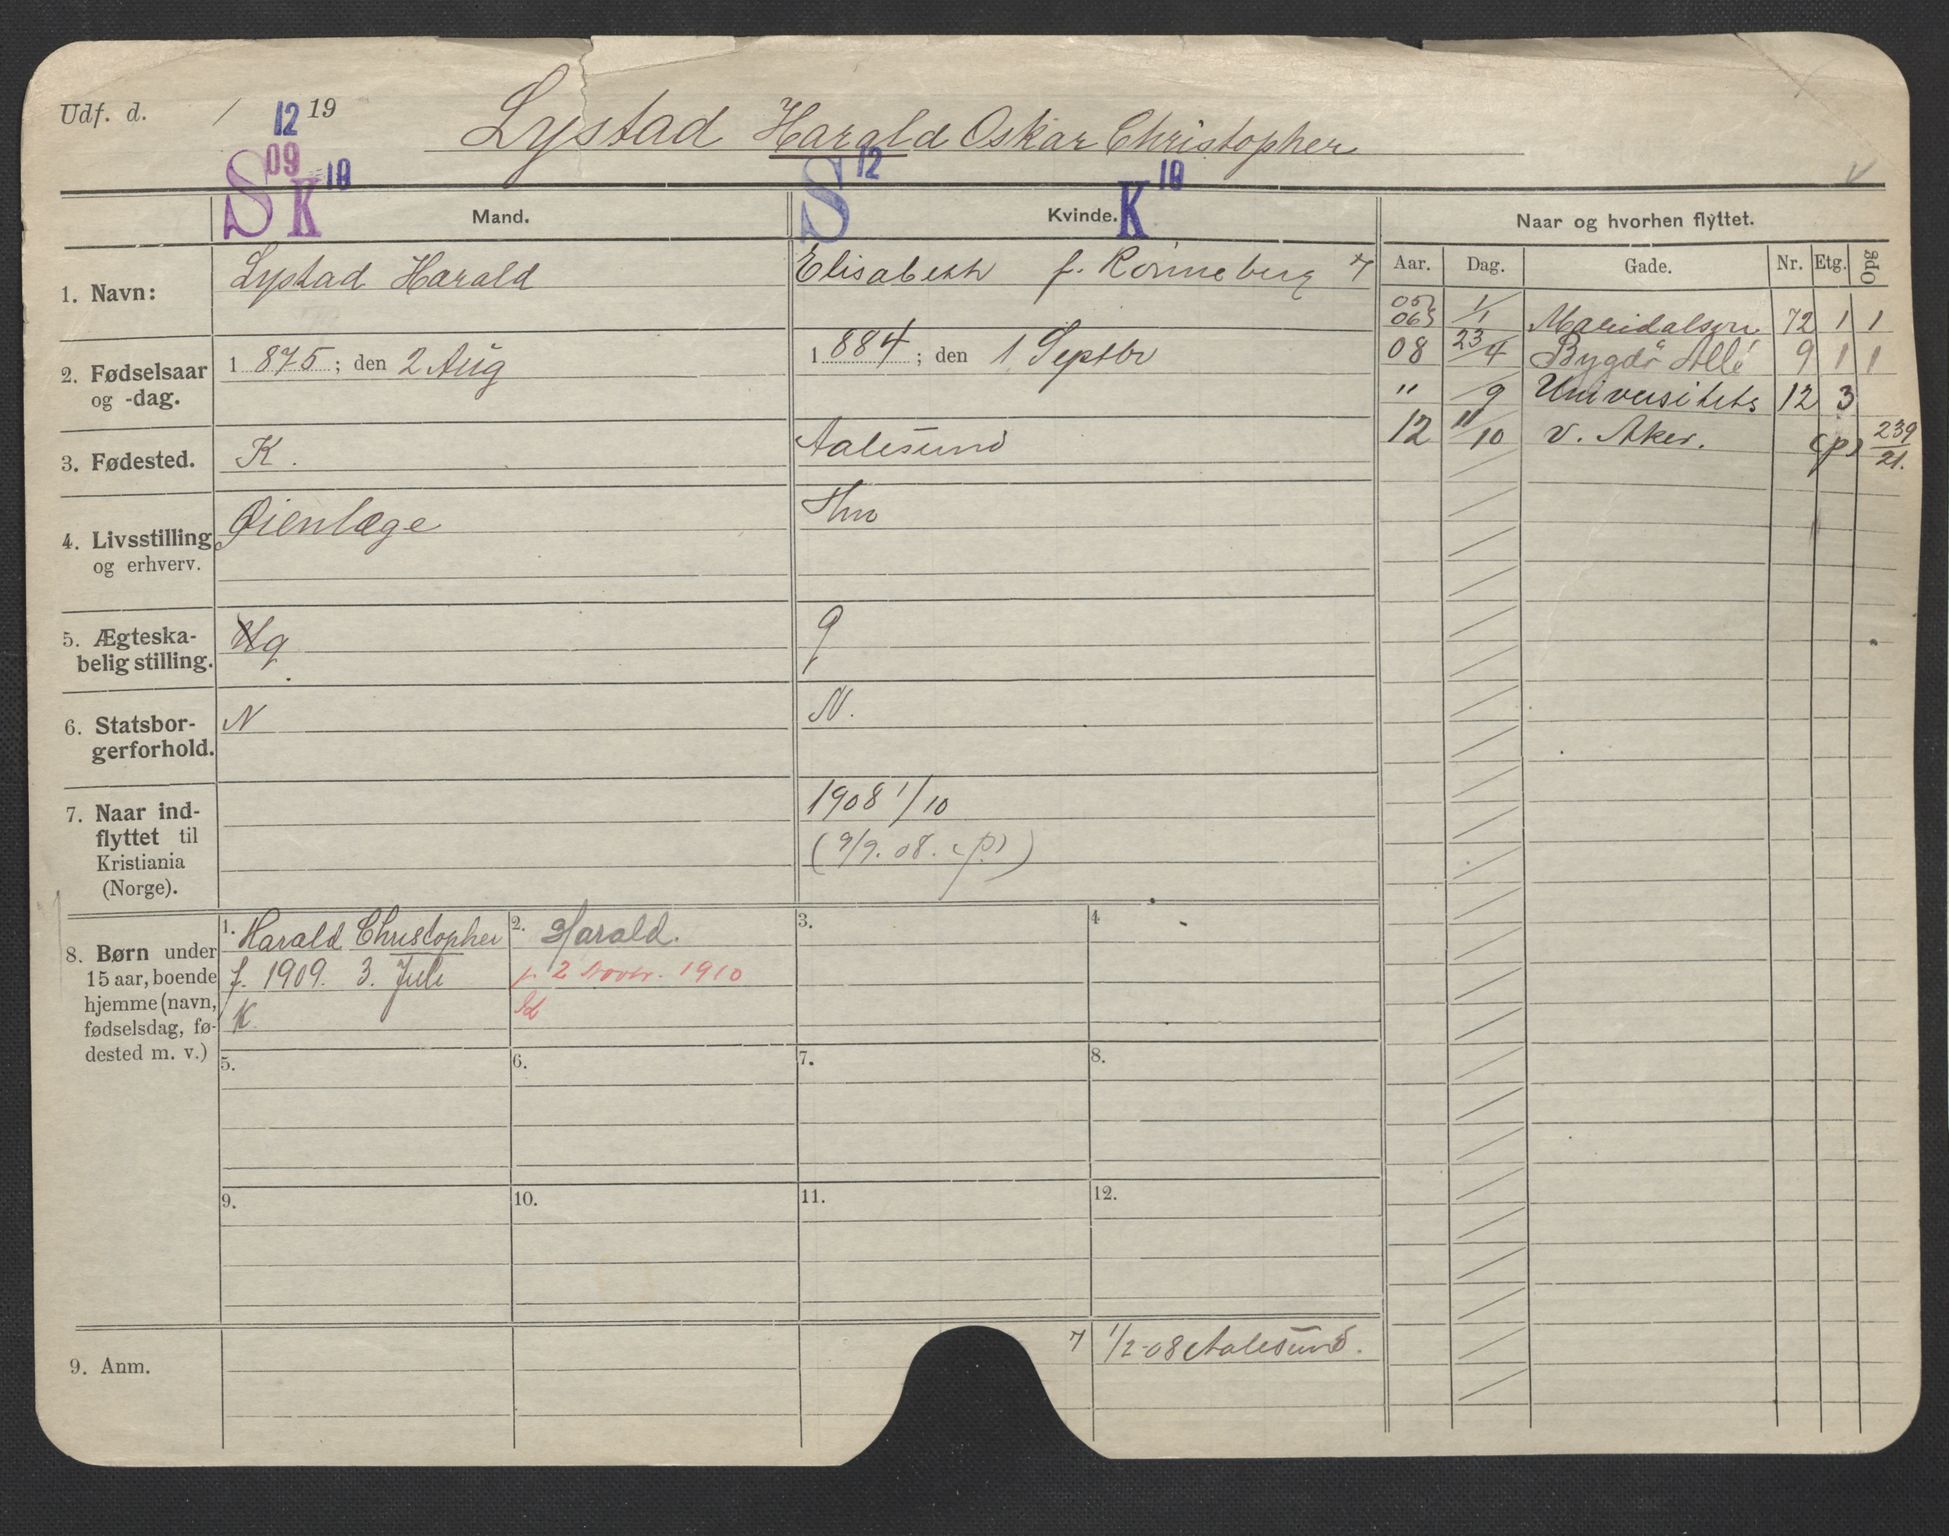 Udf. d. / 12 19
Lystad Harald Oskar Christopher
S 09 K 10 S 12 K 10
Mand. Kvinde. Naar og hvorhen flyttet.
Aar. Dag. Gade. Nr. Etg. Opg
1. Navn: Lystad Harald Elisabeth f. Rönneberg 7
2. Fødselsaar og -dag. 1 875; den 2 Aug 1 884; den 1 Septbr
3. Fødested. K. Aalesund
4. Livsstilling og erhverv. Øienlæge Hm
5. Ægteska-
belig stilling. Ug g
6. Statsbor-
gerforhold. N N.
7. Naar ind-
flyttet til
Kristiania
(Norge).
1908 1/10
(9/9. 08. (p))
05
06 1/1 Maridalsvn 72 1 1
08 23/4 Bygdø Allé 9 1 1
" /9 Universitets 12 3
12 11/10 v. Aker. (p) 239/21.
8. Børn under
15 aar, boende
hjemme (navn,
fødselsdag, fø-
dested m. v.)
1. Harald Christopher
f. 1909. 3. Juli
K
2. Harald.
f. 2 Novbr. 1910
3.
4
5.
6.
7.
8.
9.
10.
11.
12.
9. Anm.
7 1/2-08 Aalesund.